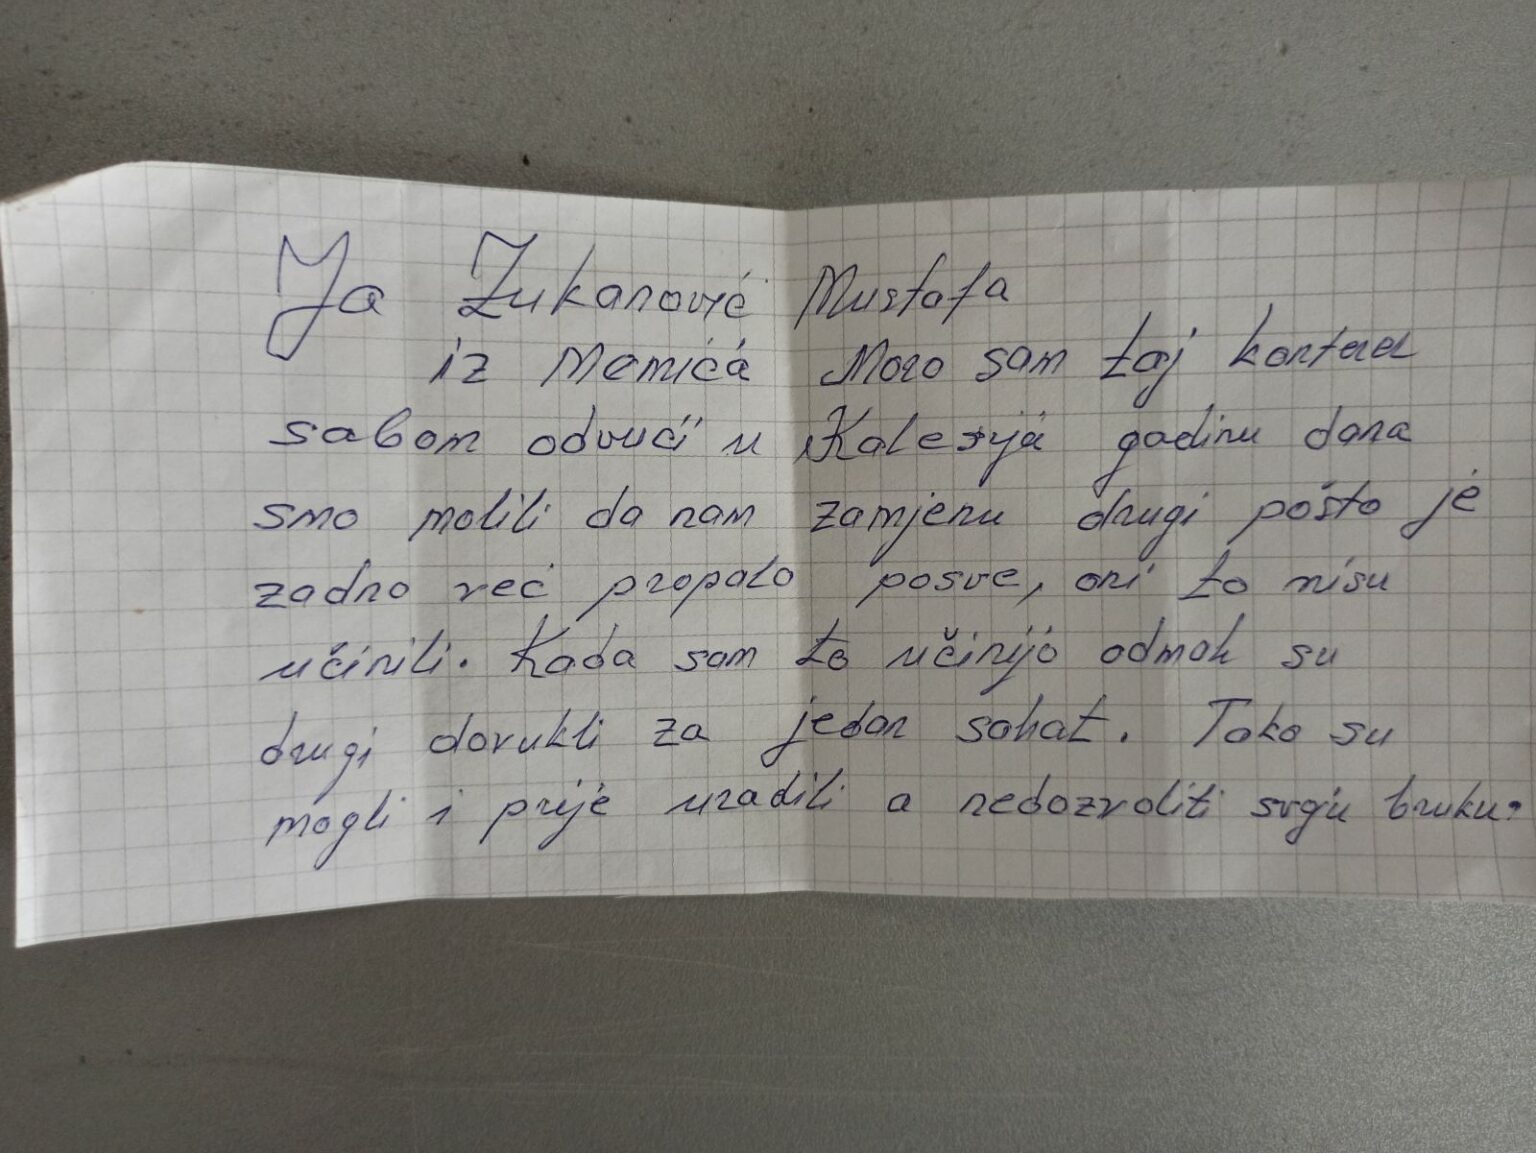 Ja Zukanović Mustafa
iz Memića Moro sam taj kontener
sabom odvući u Kalesija godinu dana
smo molili da nam zamjenu drugi pošto je
zadno već propalo posve, oni to nisu
učinili. Kada sam to učinijo odmah su
drugi dovukli za jedan sahat. Tako su
mogli i prije uradili a nedozvoliti svoju bruku.